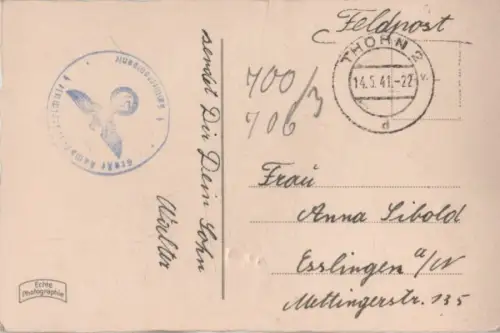 Feldpost
THORN 2
14.5.41.-22
d
700/3
706
sendet Dir Dein Sohn
Walter
Frau
Anna Sibold
Esslingen a/N
Mettingerstr. 135
Echte
Photographie